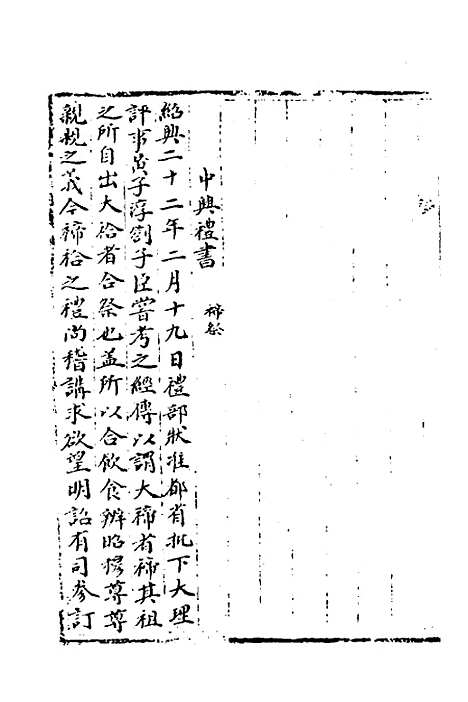 中興禮書 禘祭
紹興二十二年二月十九日禮部狀准都省批下大理
評事黃子淳劄子臣嘗考之經傳以謂大禘者禘其祖
之所自出大祫者合祭也盖所以合飲食辨昭穆尊尊
親親之義今禘祫之禮尚稽講求欲望明詔有司參訂